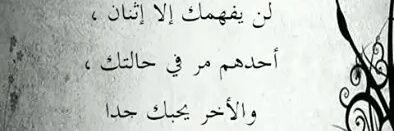 لن يفهمك إلا إثنان ،
أحدهم مر في حالتك ،
والأخر يحبك جدا